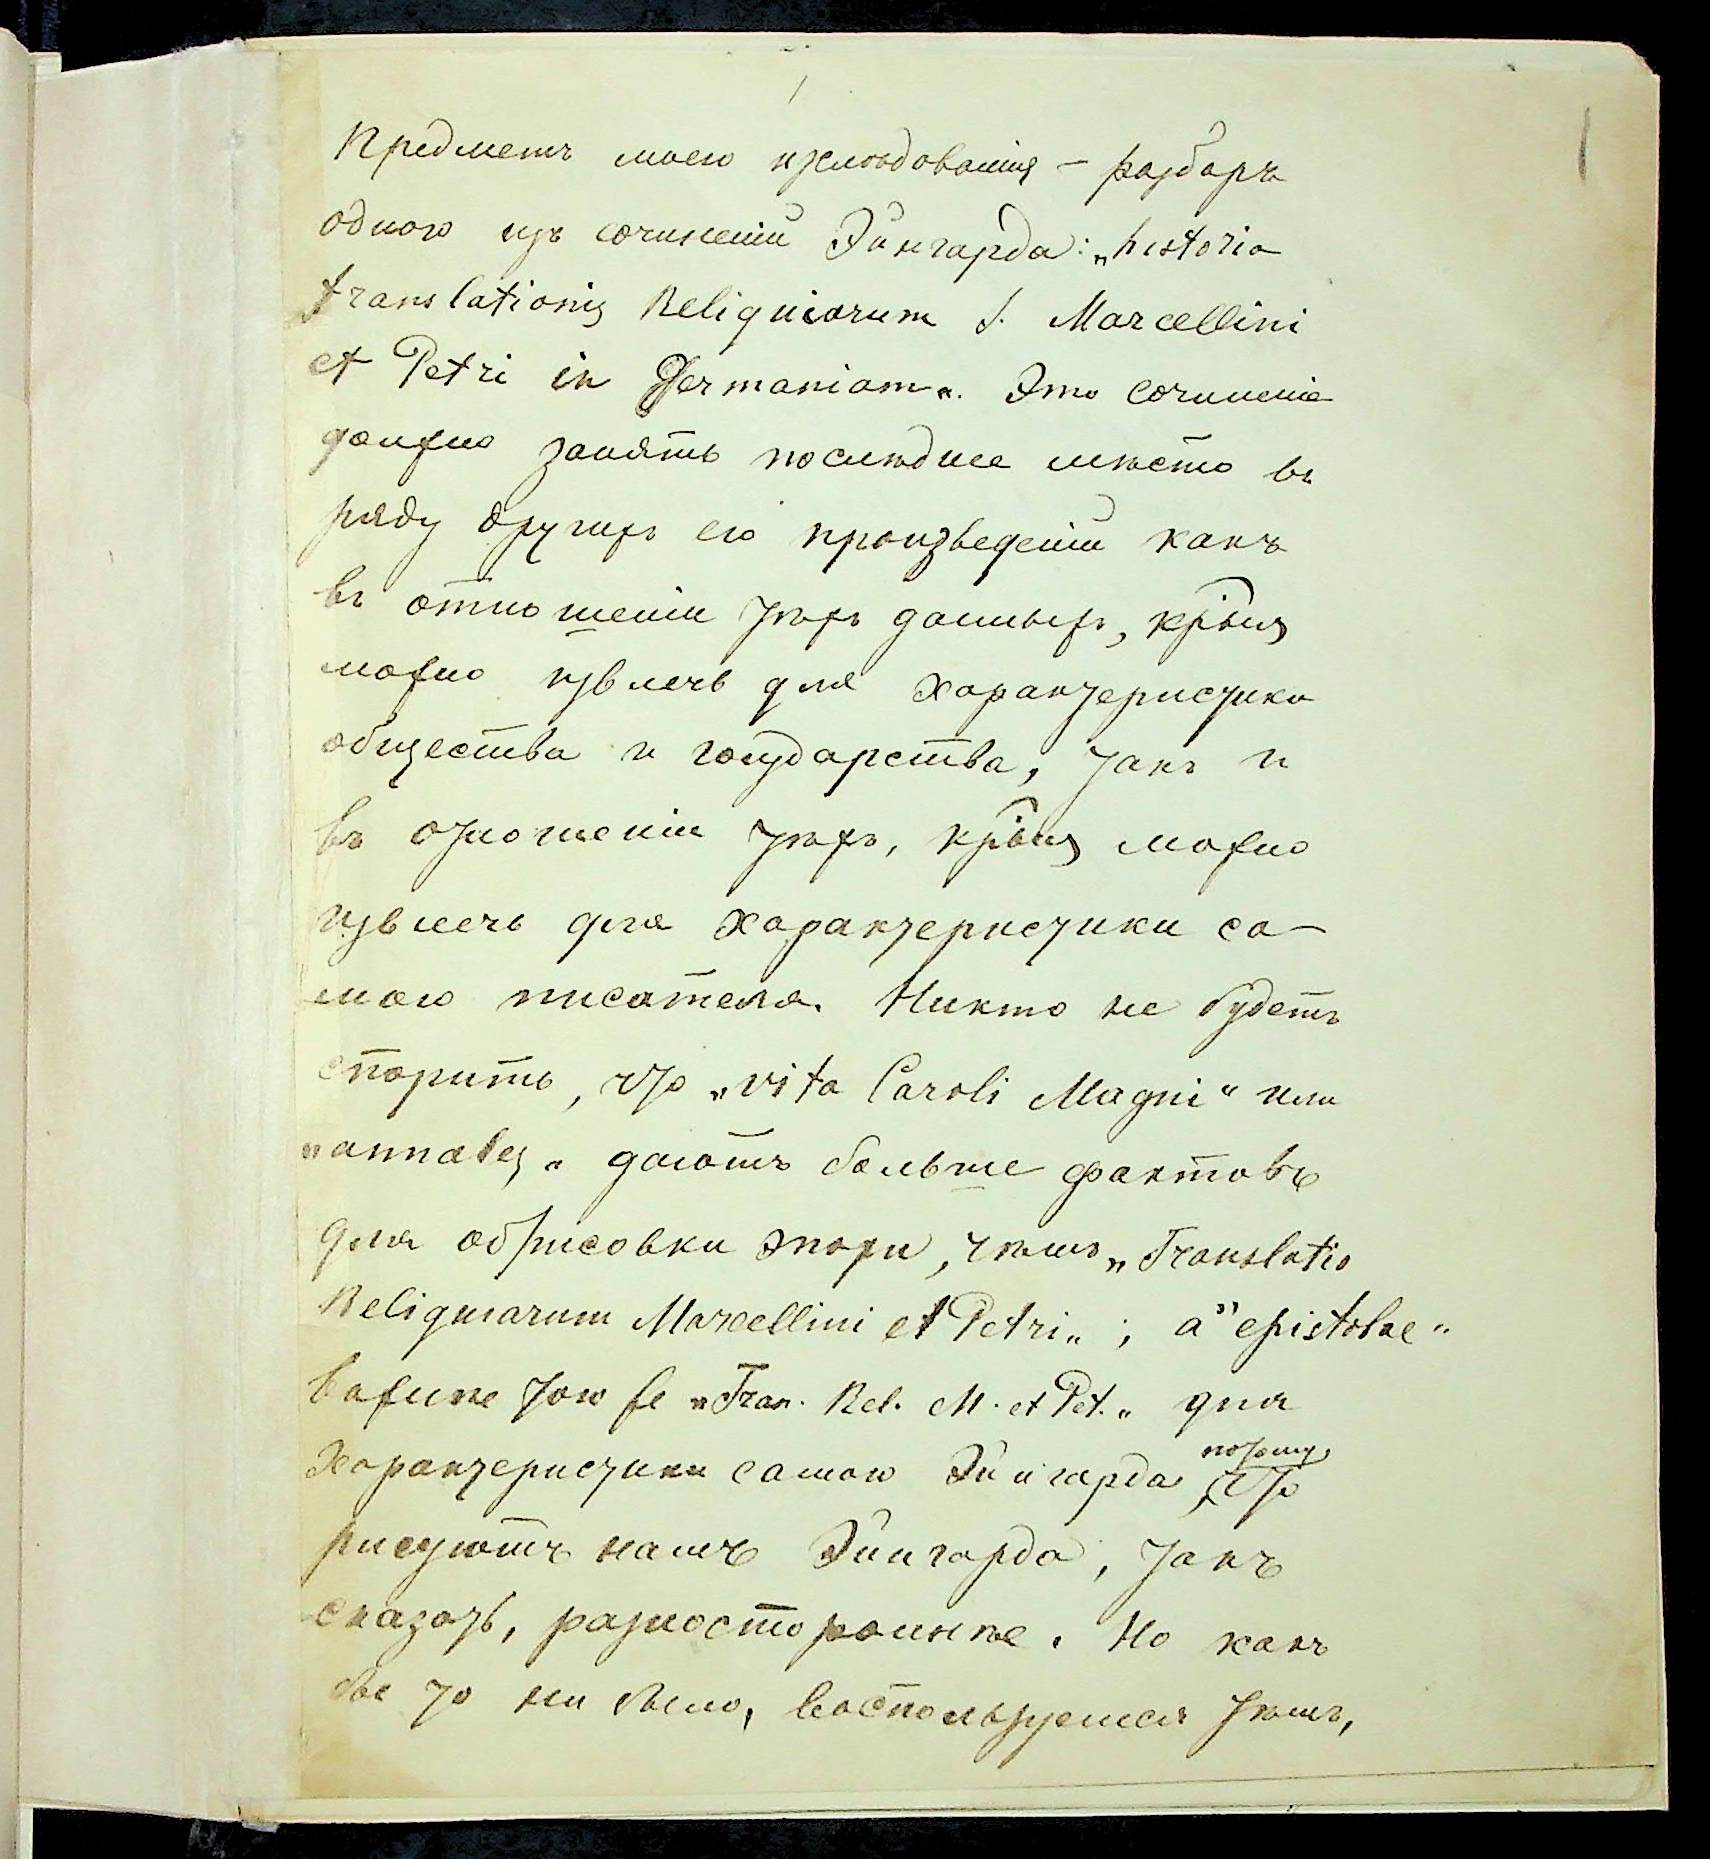 1
1
Предметъ моего изслѣдованія – разборъ
одного изъ сочиненій Эйнгарда: „historia
translationis Reliquiarum S. Marcellini
et Petri in Germaniam“. Это сочиненіе
должно занять послѣднее мѣсто въ
ряду другихъ его произведеній какъ
въ отношеніи тѣхъ данныхъ, кр̂ыя
можно извлечь для характеристики
общества и государства, такъ и
въ отношеніи тѣхъ, кр̂ыя можно
извлечь для характеристики са-
мого писателя. Никто не будетъ
спорить, что „vita Caroli Magni“ или
„annales“ даютъ больше фактовъ
для обрисовки эпохи, чѣмъ „Translatio
Reliquiarum Marcellini et Petri“; а „epistolae“
важнѣе того же „Tran. Rel. M. et Pet.“ для
характеристики самого Эйнгарда, потому что
рисуютъ намъ Эйнгарда, такъ
сказать, разностороннѣе. Но какъ
бы то ни было, воспользуемся тѣмъ,